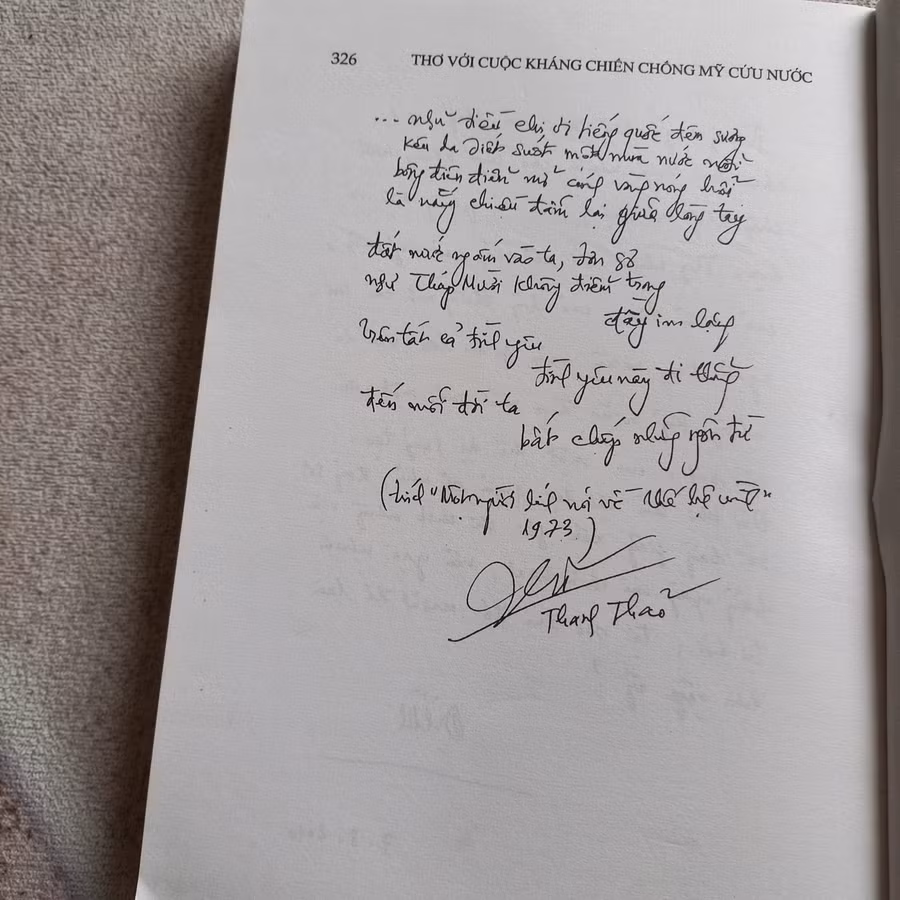 326 THƠ VỚI CUỘC KHÁNG CHIẾN CHỐNG MỸ CỨU NƯỚC
... như điều chi đi tiếng quốc đêm sương
kêu da diết suốt một mùa nước nổi
bông điên điển mở cánh vàng nóng hổi
là nắng chiều đằm lại giữa lòng tay
đất nước ngấm vào ta, đơn sơ
như Tháp Mười không điểm trang
đầy im lặng
trên tất cả tình yêu
tình yêu này đi thẳng
đến mỗi đời ta
bất chấp những ngôn từ
(trích "Một người lính nói về thế hệ mình"
1973)
Thanh Thảo